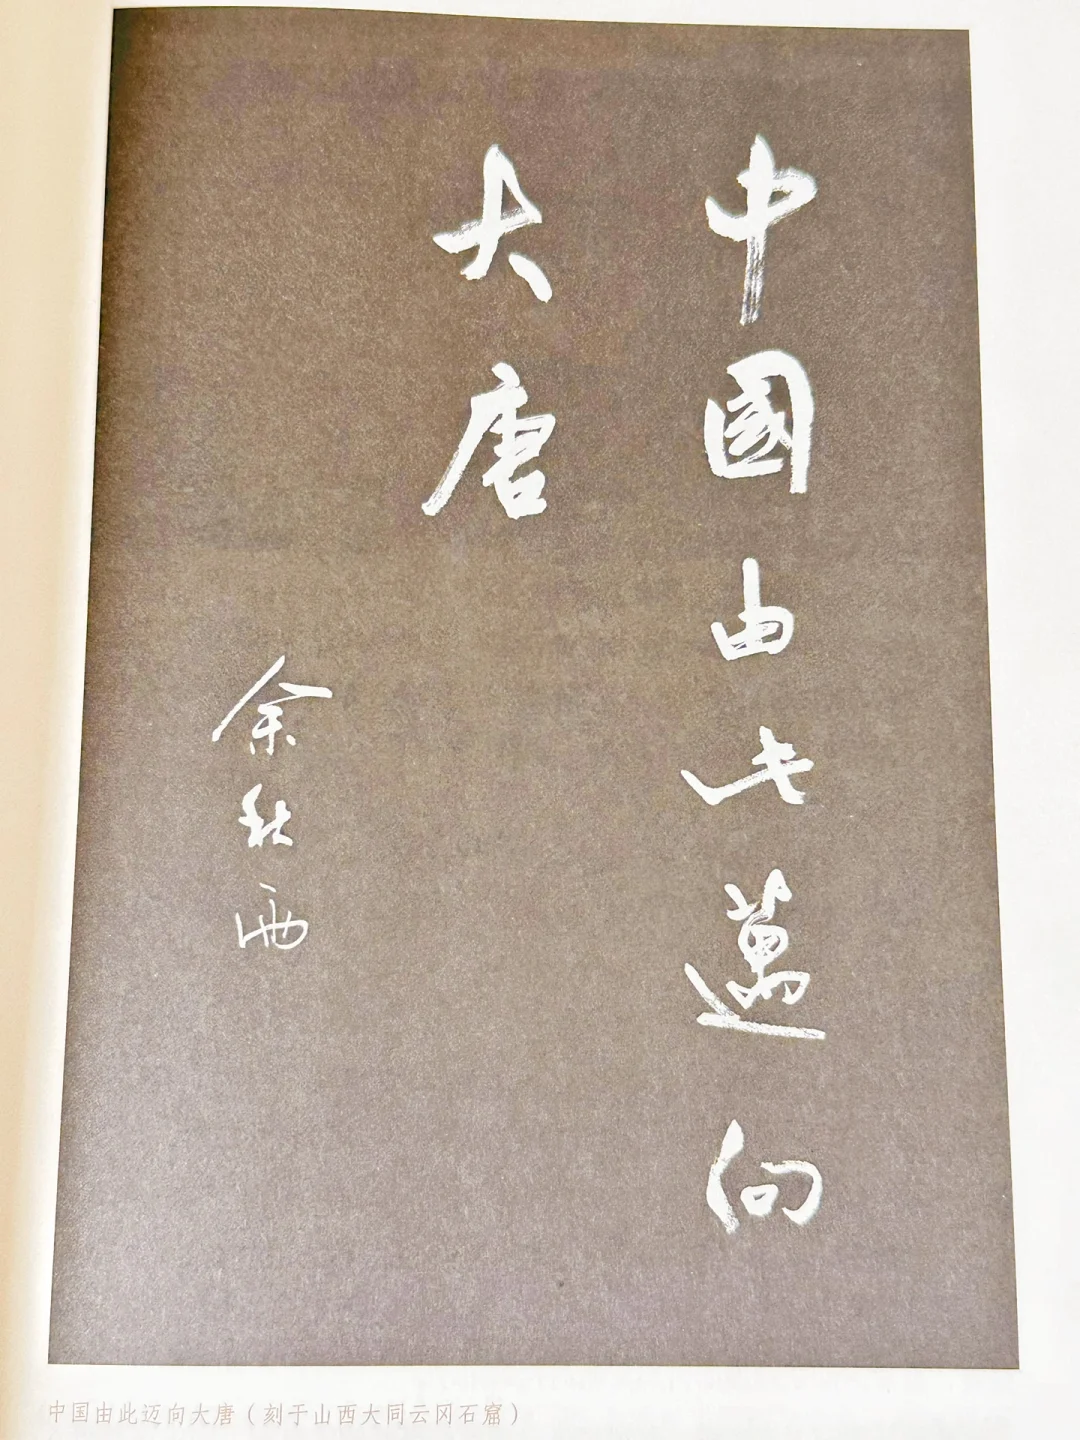 中國由此邁向
大唐
余秋雨
中国由此迈向大唐（刻于山西大同云冈石窟）